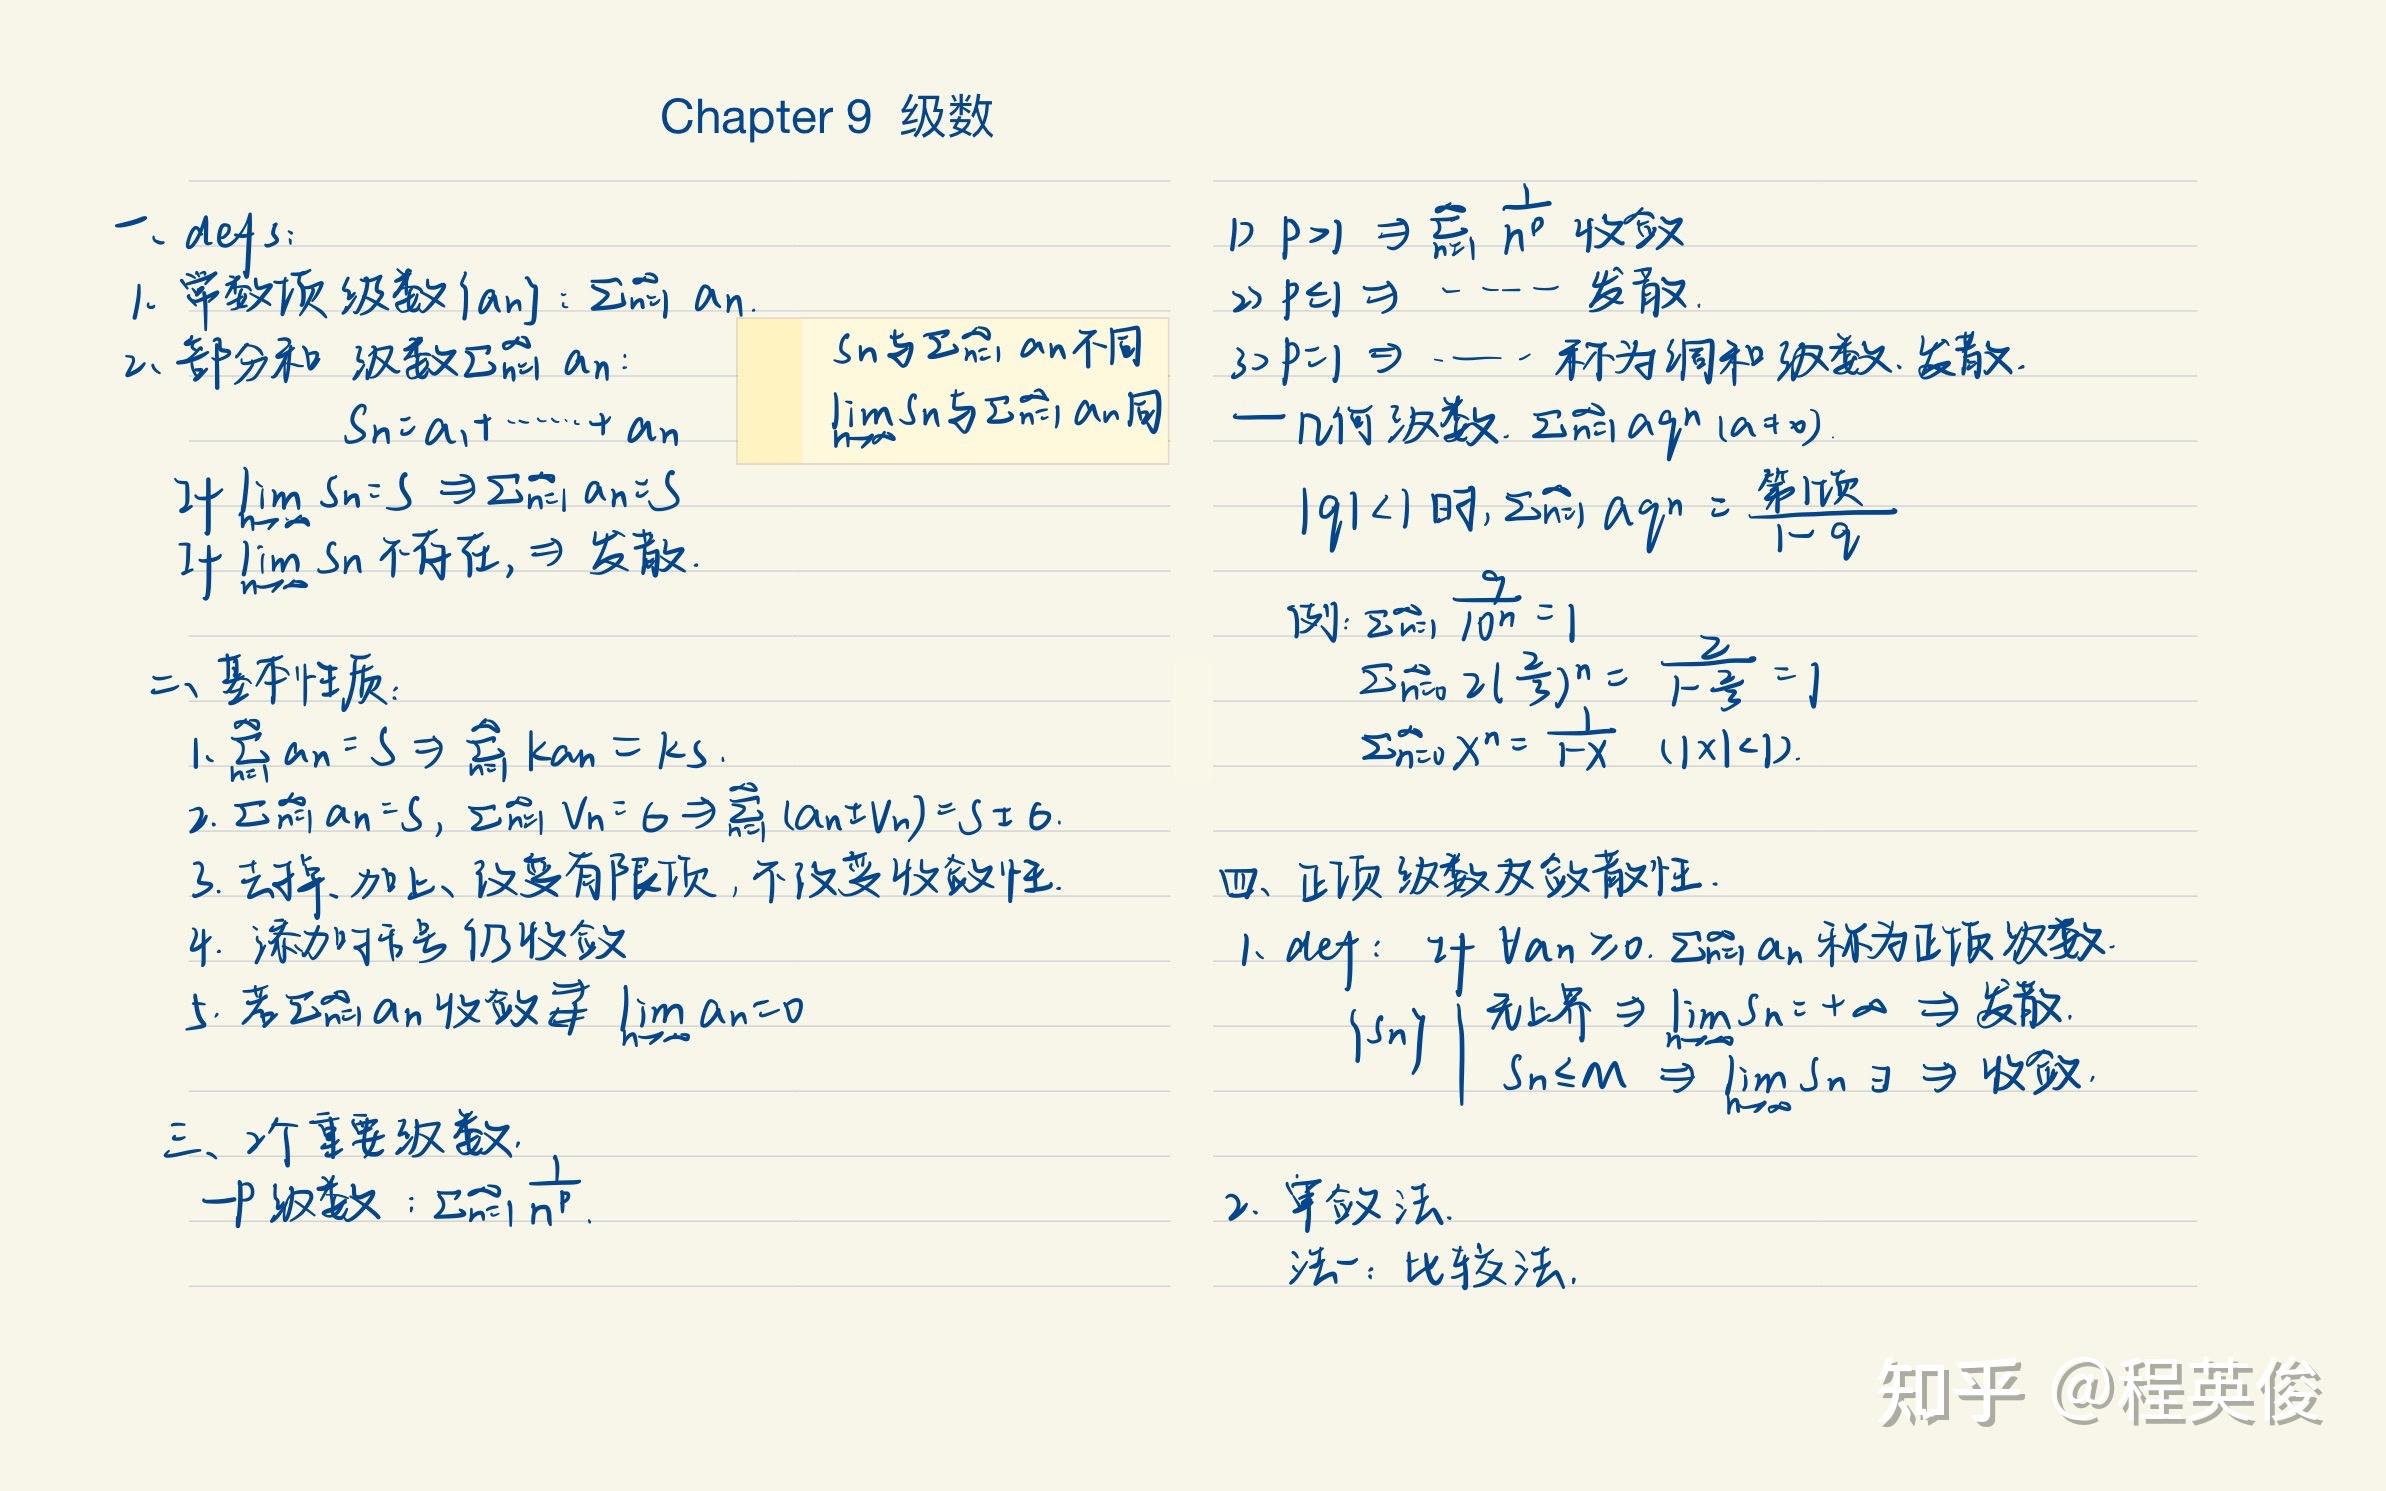 Chapter 9 级数
一、defs:
1、常数项级数{an}: Σ_{n=1}^∞ an.
2、部分和 级数Σ_{n=1}^∞ an:
Sn=a1+······+an
Sn与Σ_{n=1}^∞ an不同
lim_{n→∞} Sn与Σ_{n=1}^∞ an同
If lim_{n→∞} Sn=S ⇒ Σ_{n=1}^∞ an=S
If lim_{n→∞} Sn 不存在, ⇒ 发散.
二、基本性质:
1、Σ_{n=1}^∞ an=S ⇒ Σ_{n=1}^∞ kan=ks.
2. Σ_{n=1}^∞ an=S, Σ_{n=1}^∞ Vn=6 ⇒ Σ_{n=1}^∞ (an±Vn)=S±6.
3. 去掉、加上、改变有限项, 不改变收敛性.
4. 添加括号仍收敛
5. 若Σ_{n=1}^∞ an 收敛 ⇄̸ lim_{n→∞} an=0
三、2个重要级数.
一P级数: Σ_{n=1}^∞ 1/n^p.
1> P>1 ⇒ Σ_{n=1}^∞ 1/n^p 收敛
2> P≤1 ⇒ ····· 发散.
3> P=1 ⇒ ····· 称为调和级数. 发散.
一几何级数. Σ_{n=1}^∞ aq^n (a≠0).
|q|<1时, Σ_{n=1}^∞ aq^n = 第1项/(1-q)
例: Σ_{n=1}^∞ 9/10^n = 1
Σ_{n=0}^∞ 2(2/3)^n = 2/(1-2/3) = 1
Σ_{n=0}^∞ x^n = 1/(1-x) (|x|<1).
四、正项级数及敛散性.
1、def: If ∀an≥0. Σ_{n=1}^∞ an 称为正项级数.
{Sn} | 无上界 ⇒ lim_{n→∞} Sn=+∞ ⇒ 发散.
Sn≤M ⇒ lim_{n→∞} Sn ∃ ⇒ 收敛.
2. 审敛法.
法一: 比较法.
知乎 @程英俊